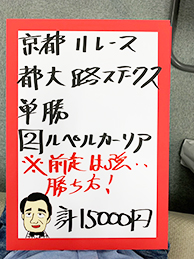 京都11レース
都大路ステークス
単勝
②ルペルカーリア
※前走は強‥
勝ち方！
計15000円